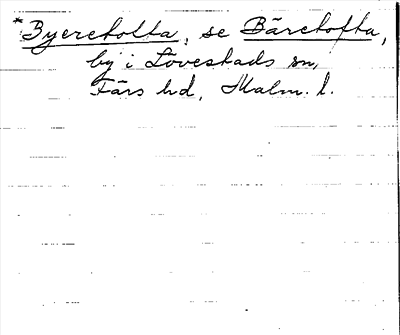 *Byeretofta, se Bäretofta,
by i Lövestads sn,
Färs hd, Malm. l.